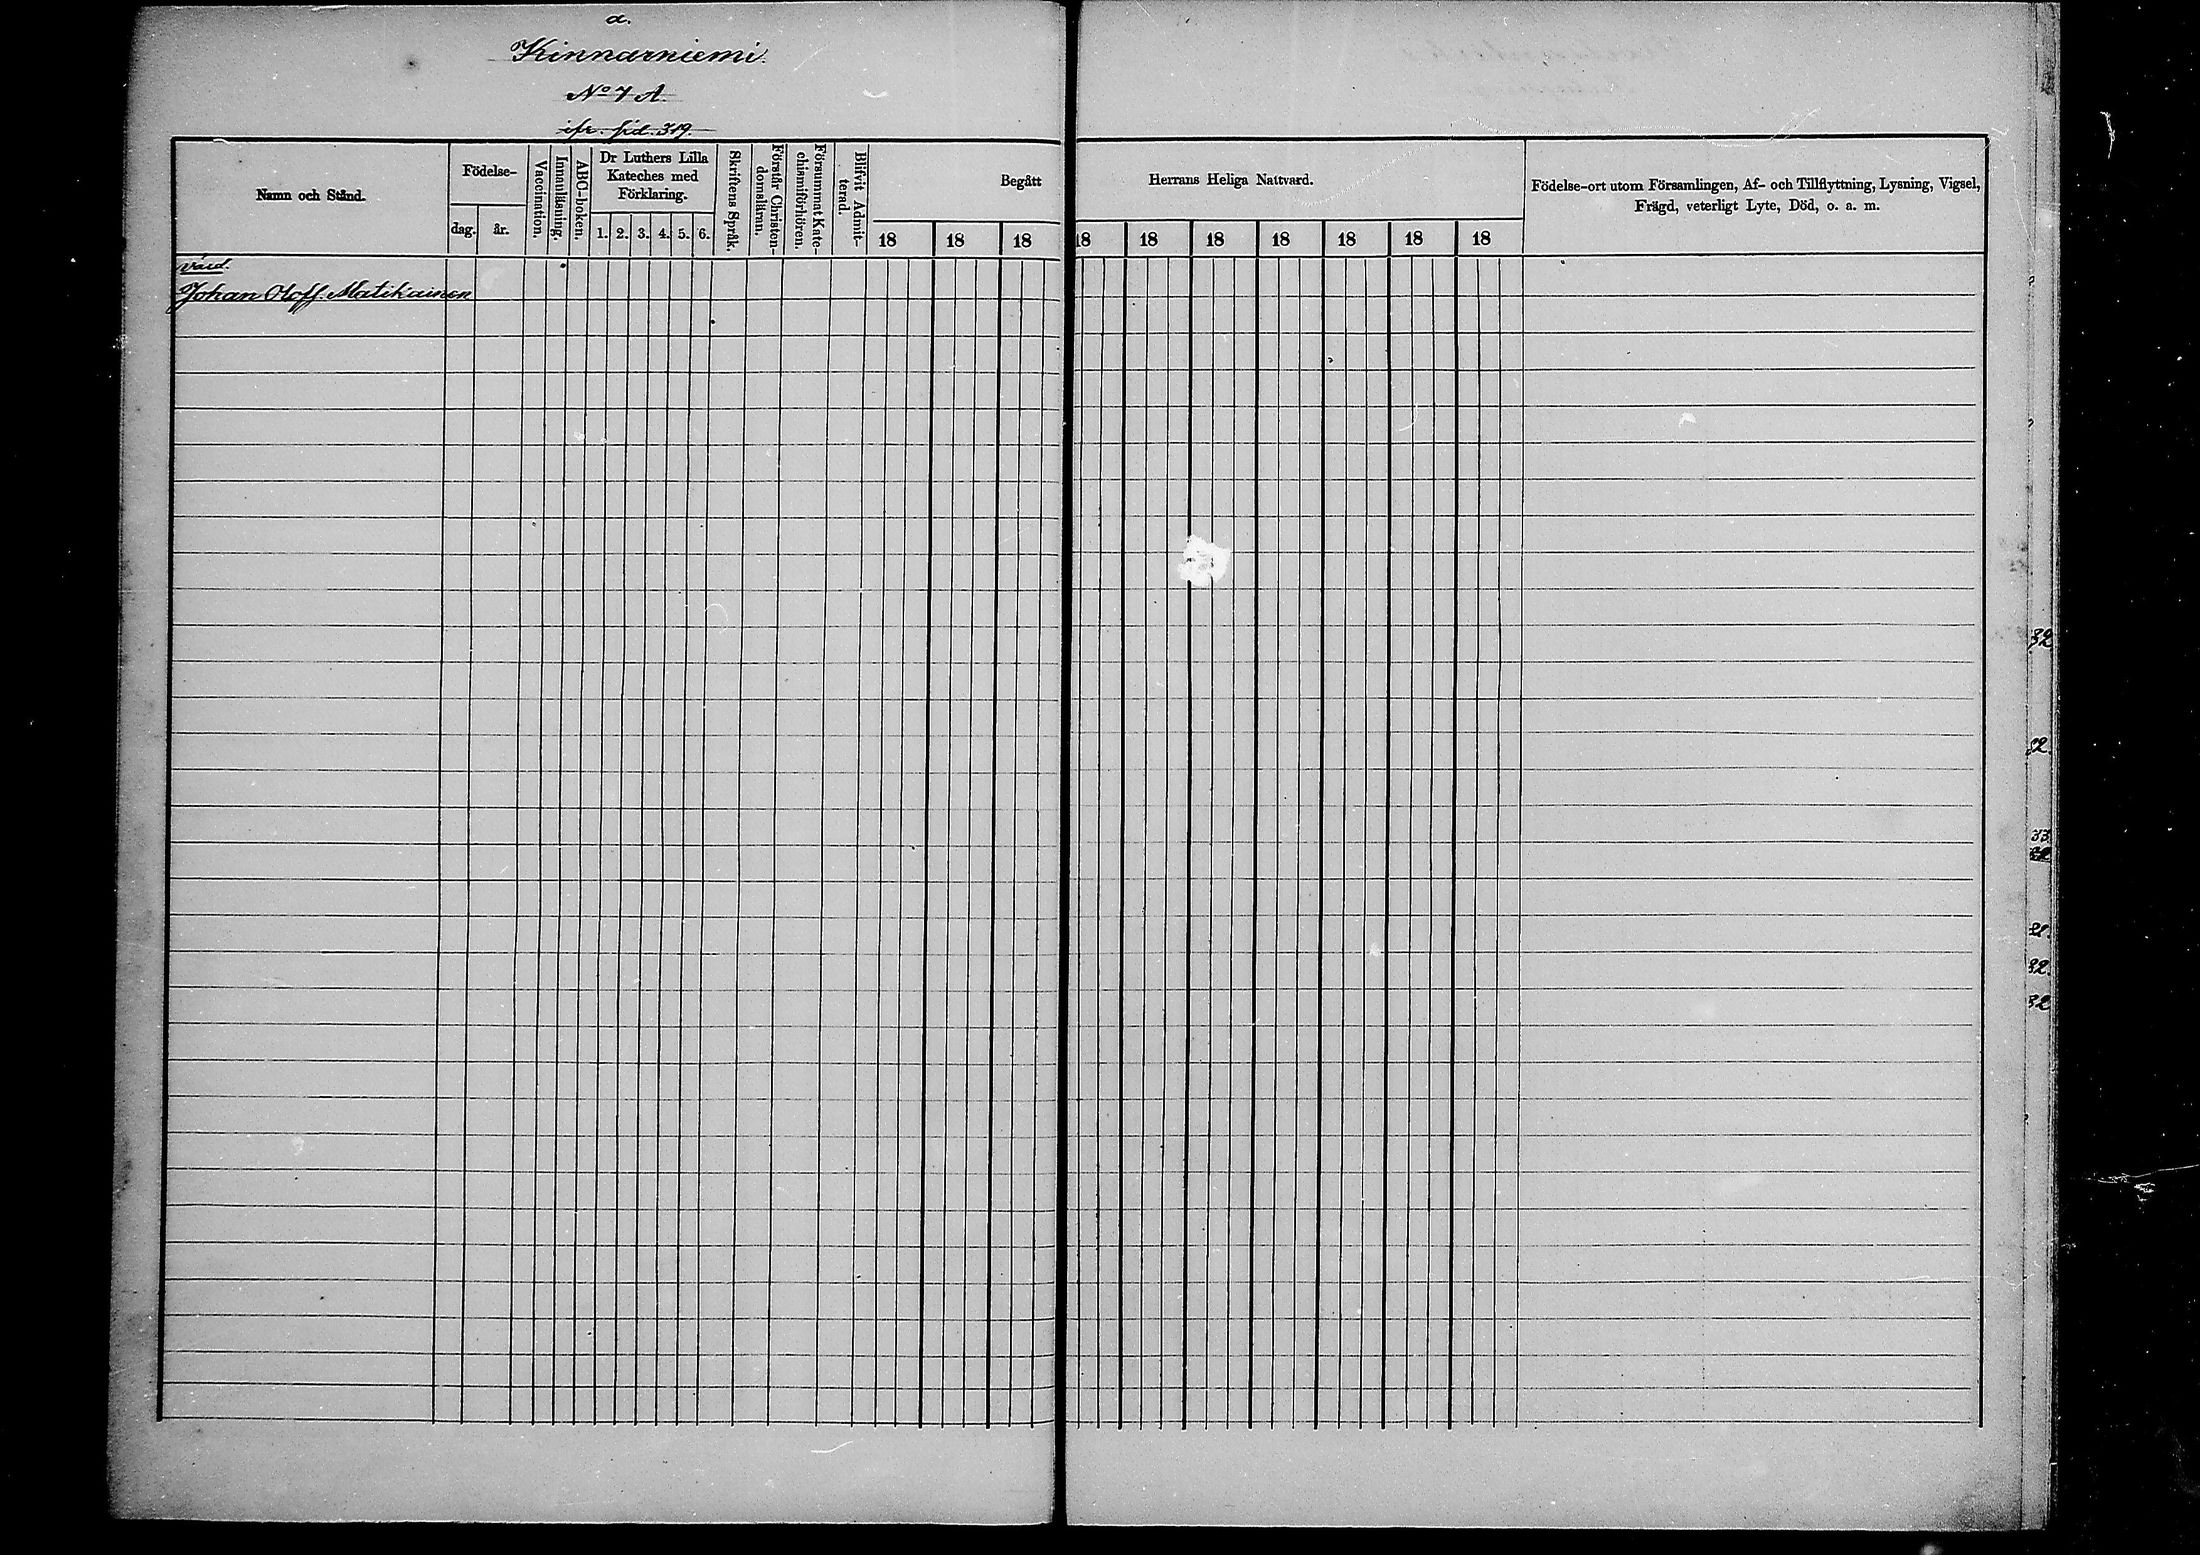 a.
Kinnarniemi.
No 7 A.
cfr. sid. 319.
Namn och Stånd.
Födelse-
dag.
år.
Vaccination.
Innanläsning.
ABC-boken.
Dr Luthers Lilla
Kateches med
Förklaring.
1. 2. 3. 4. 5. 6.
Skriftens Språk.
Förstår Christen-
domsläran.
Försummat Kate-
chismiförhören.
Blifvit Admit-
terad.
Begått
Herrans Heliga Nattvard.
18 18 18 18 18 18 18 18 18 18
Födelse-ort utom Församlingen, Af- och Tillflyttning, Lysning, Vigsel,
Frägd, veterligt Lyte, Död, o. a. m.
Värd.
Johan Oloff. Matikainen
32
32
33
32
32